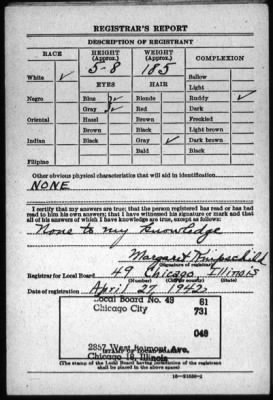 REGISTRAR'S REPORT
DESCRIPTION OF REGISTRANT
RACE HEIGHT (Approx.) WEIGHT (Approx.) COMPLEXION
5-8 185
White ✓ EYES HAIR Sallow
Light
Negro Blue ✓ Blonde Ruddy ✓
Gray ✓ Red Dark
Oriental Hazel Brown Freckled
Brown Black Light brown
Indian Black Gray ✓ Dark brown
Bald Black
Filipino
Other obvious physical characteristics that will aid in identification
NONE
I certify that my answers are true; that the person registered has read or has had
read to him his own answers; that I have witnessed his signature or mark and that
all of his answers of which I have knowledge are true, except as follows:
None to my knowledge
Margaret
(Signature of registrar)
Registrar for Local Board 49 Chicago Illinois
(Number) (City or county)
Date of registration April 27 1942
Local Board No. 49 61
Chicago City 731
049
2857 West Belmont Ave.
Chicago 18, Illinois
(STAMP OF LOCAL BOARD)
(The stamp of the Local Board having jurisdiction of the registrant
shall be placed in the above space)